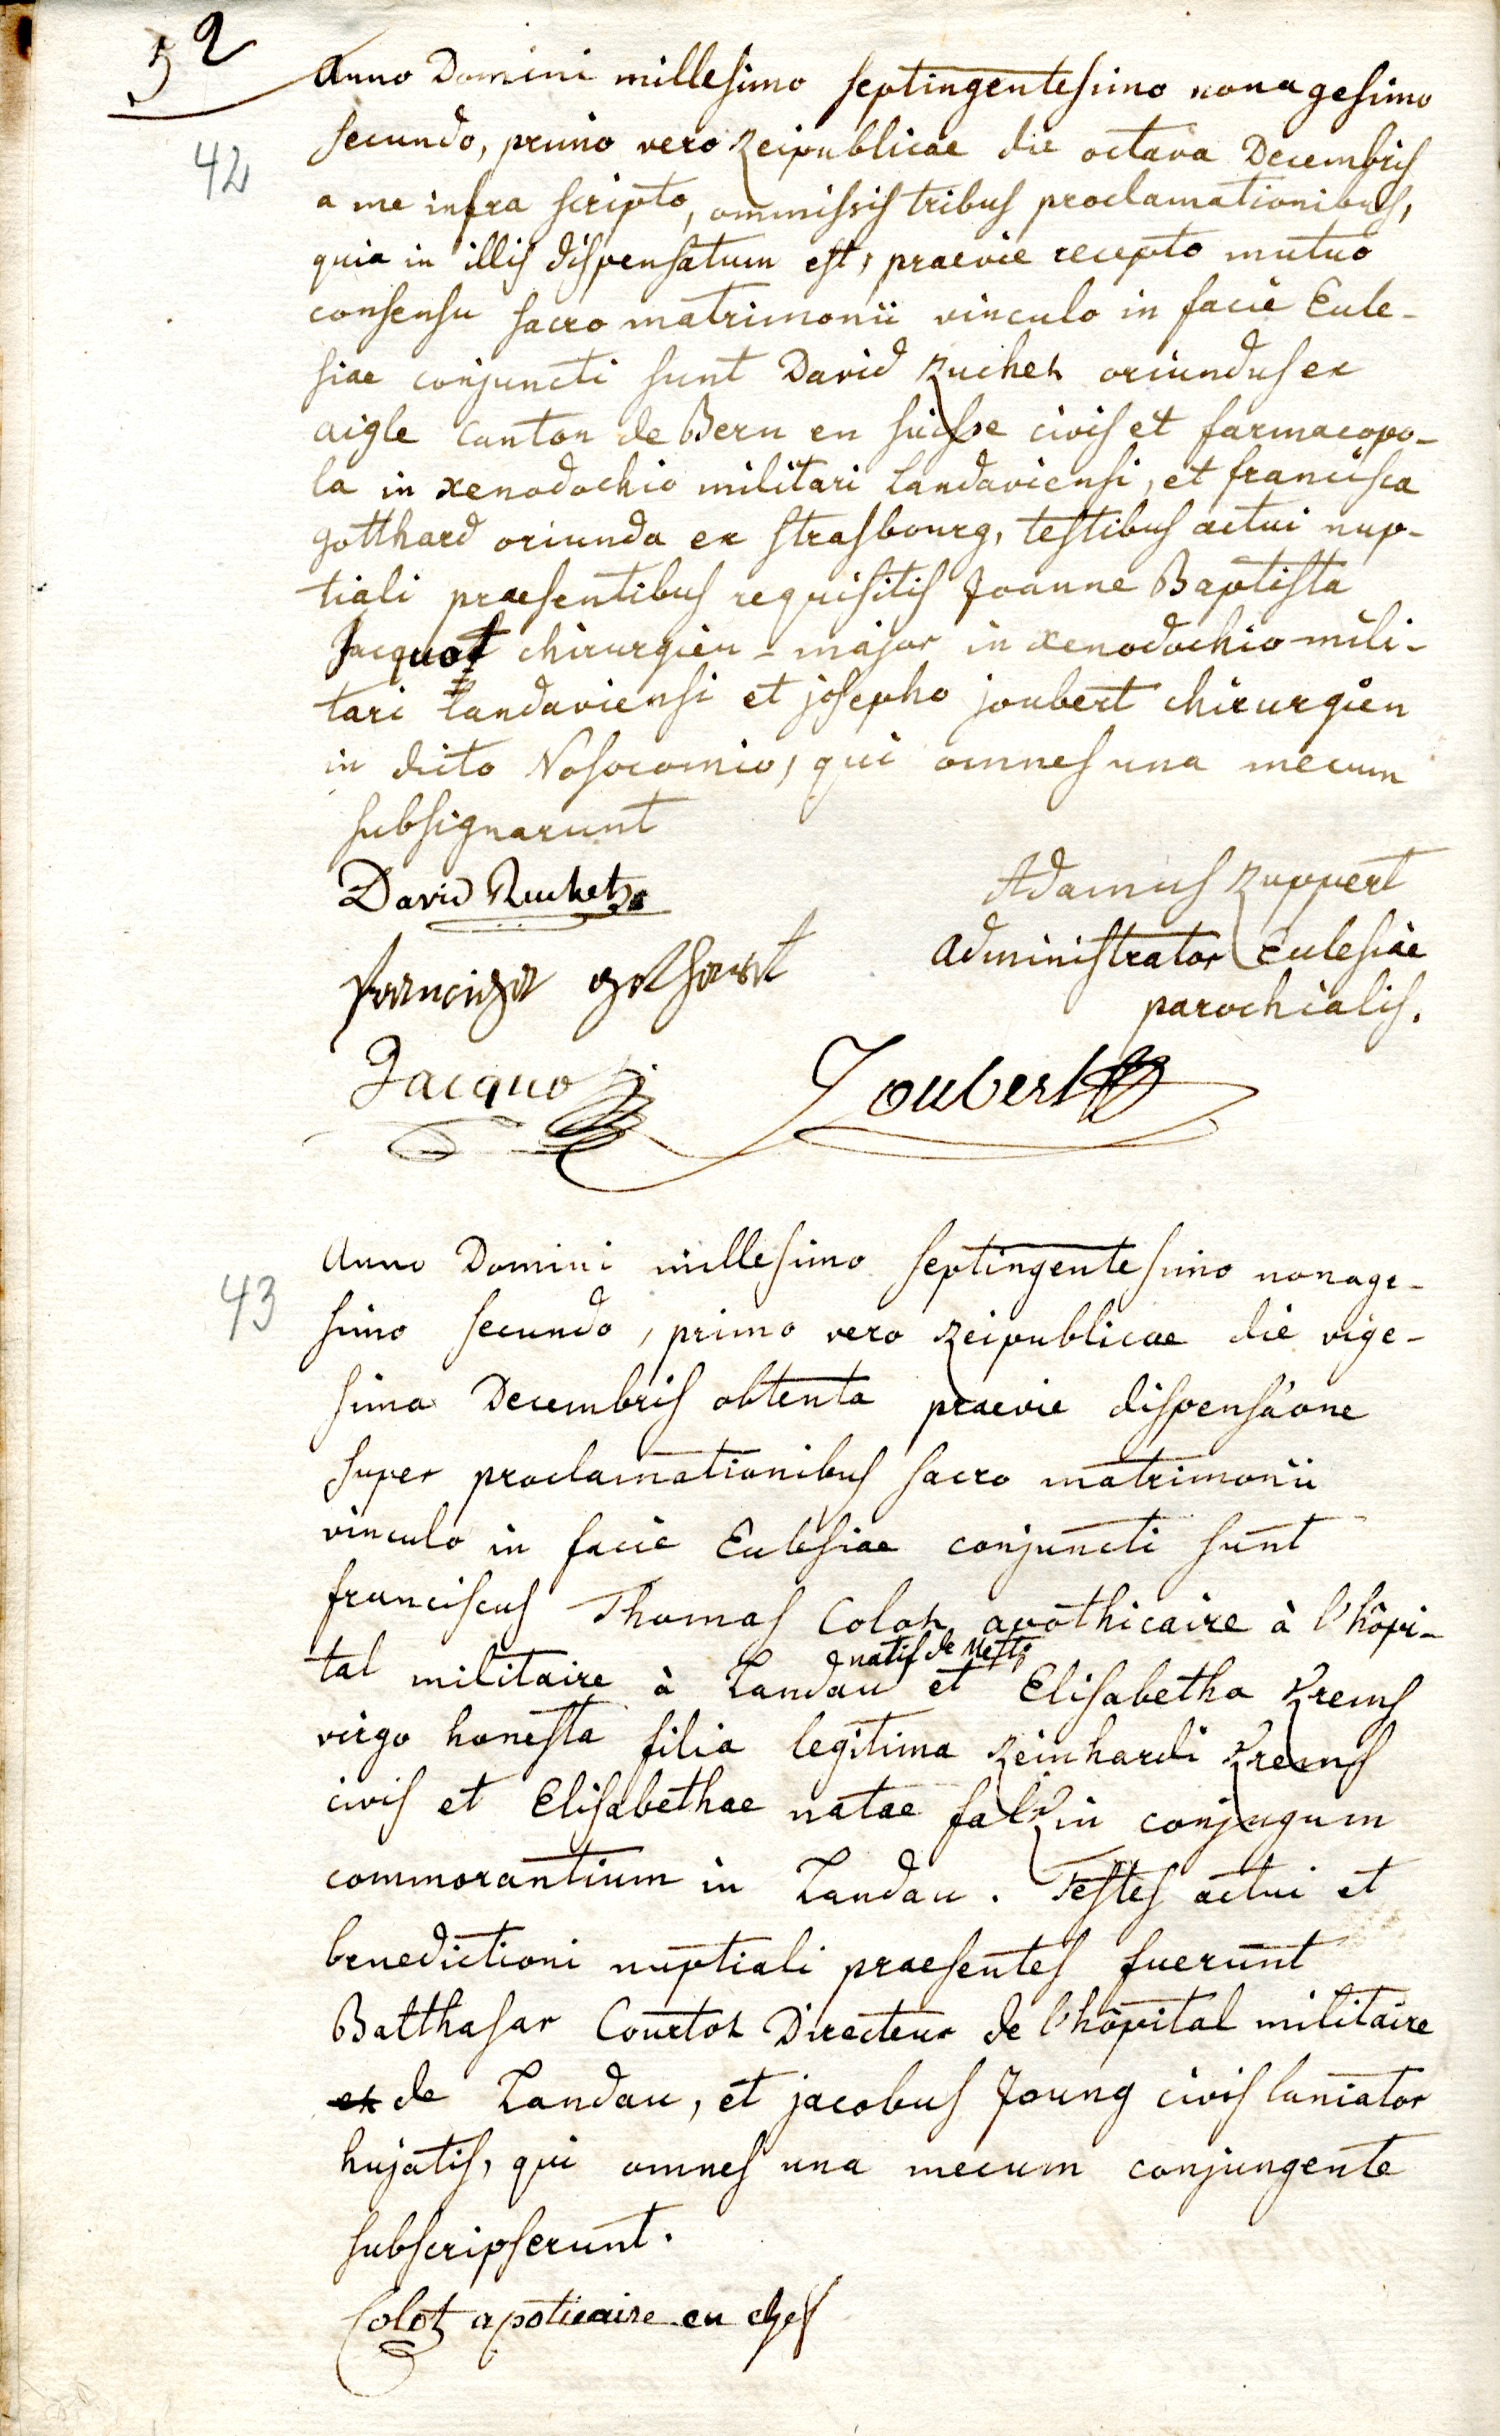 52
Anno Domini millesimo septingentesimo nonagesimo
42
secundo, primo vero Reipublicae die octava Decembris
a me infra scripto, ommissis tribus proclamationibus,
quia in illis dispensatum est, praevie recepto mutuo
consensu sacro matrimonii vinculo in facie Eccle-
siae conjuncti sunt David Ruchet oriundus ex
aigle Canton de Bern en suisse civis et farmacopo-
la in xenodochio militari Landaviensi, et francisca
gotthard oriunda ex strasbourg, testibus actui nup-
tiali praesentibus requisitis Joanne Baptista
Jacquot chirurgien-major in xenodochio mili-
tari Landaviensi et josepho joubert chirurgien
in dicto Nosocomio, qui omnes una mecum
subsignarunt
David Ruchet
Adamus Ruppert
Administrator Ecclesiae
parochialis.
franciska gothart
Jacquo Joubert
Anno Domini millesimo septingentesimo nonage-
43
simo secundo, primo vero Reipublicae die vige-
sima Decembris obtenta praevie dispensaone
super proclamationibus sacro matrimonii
vinculo in facie Ecclesiae conjuncti sunt
franciscus Thomas Colot apothicaire à l'hôpi-
natif de Metz
tal militaire à Landau et Elisabetha Krems
virgo honesta filia legitima Reinhardi Krems
civis et Elisabethae natae falkin conjugum
commorantium in Landau. Testes actui et
benedictioni nuptiali praesentes fuerunt
Balthasar Courtot Directeur de l'hôpital militaire
et de Landau, et jacobus Joung civis laniator
hujatis, qui omnes una mecum conjungente
subscripserunt.
Colot apoticaire en chef